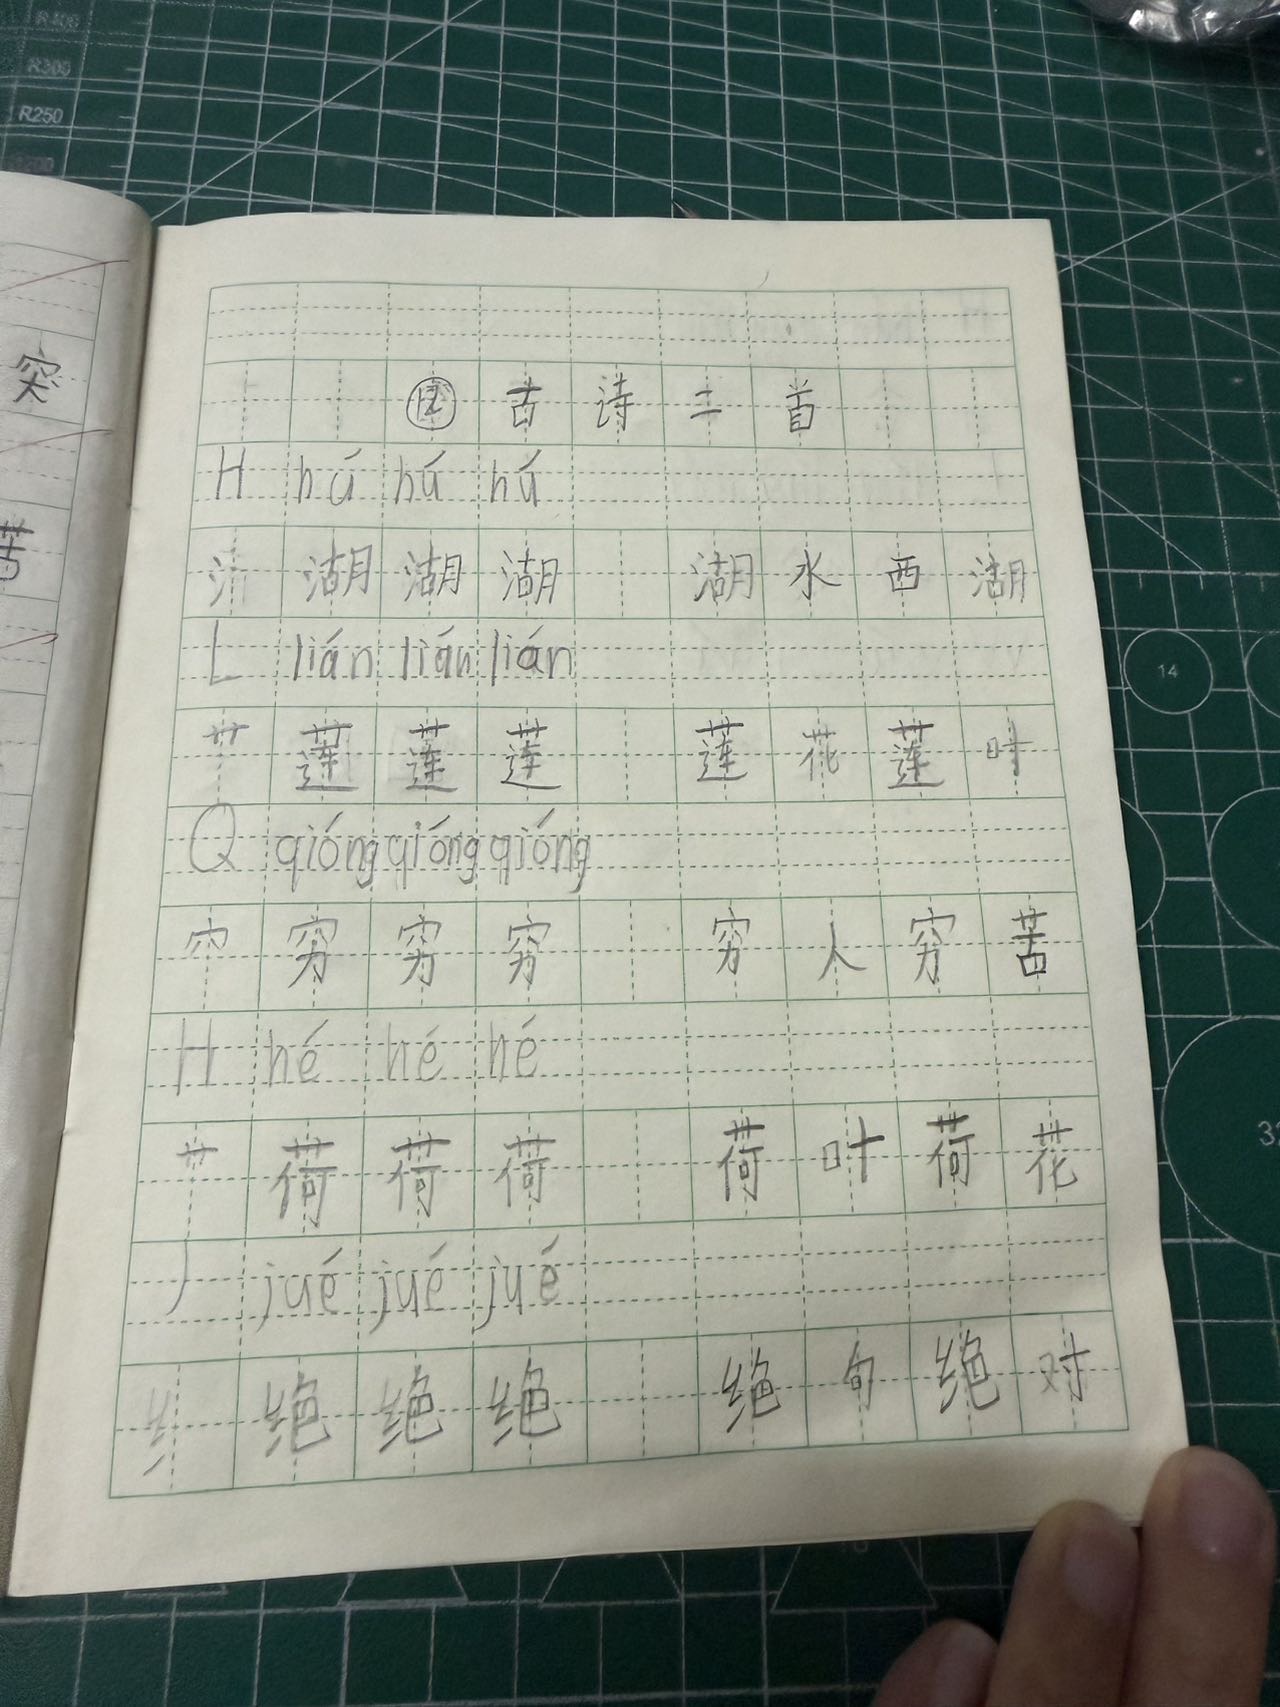 R400
R300
R250
R200
突
苦
古诗二首
H hú hú hú
氵 湖 湖 湖 湖水西湖
L lián lián lián
艹 莲 莲 莲 莲花莲叶
14
Q qióng qióng qióng
穴 穷 穷 穷 穷人穷苦
H hé hé hé
艹 荷 荷 荷 荷叶荷花
32
J jué jué jué
纟 绝 绝 绝 绝句绝对